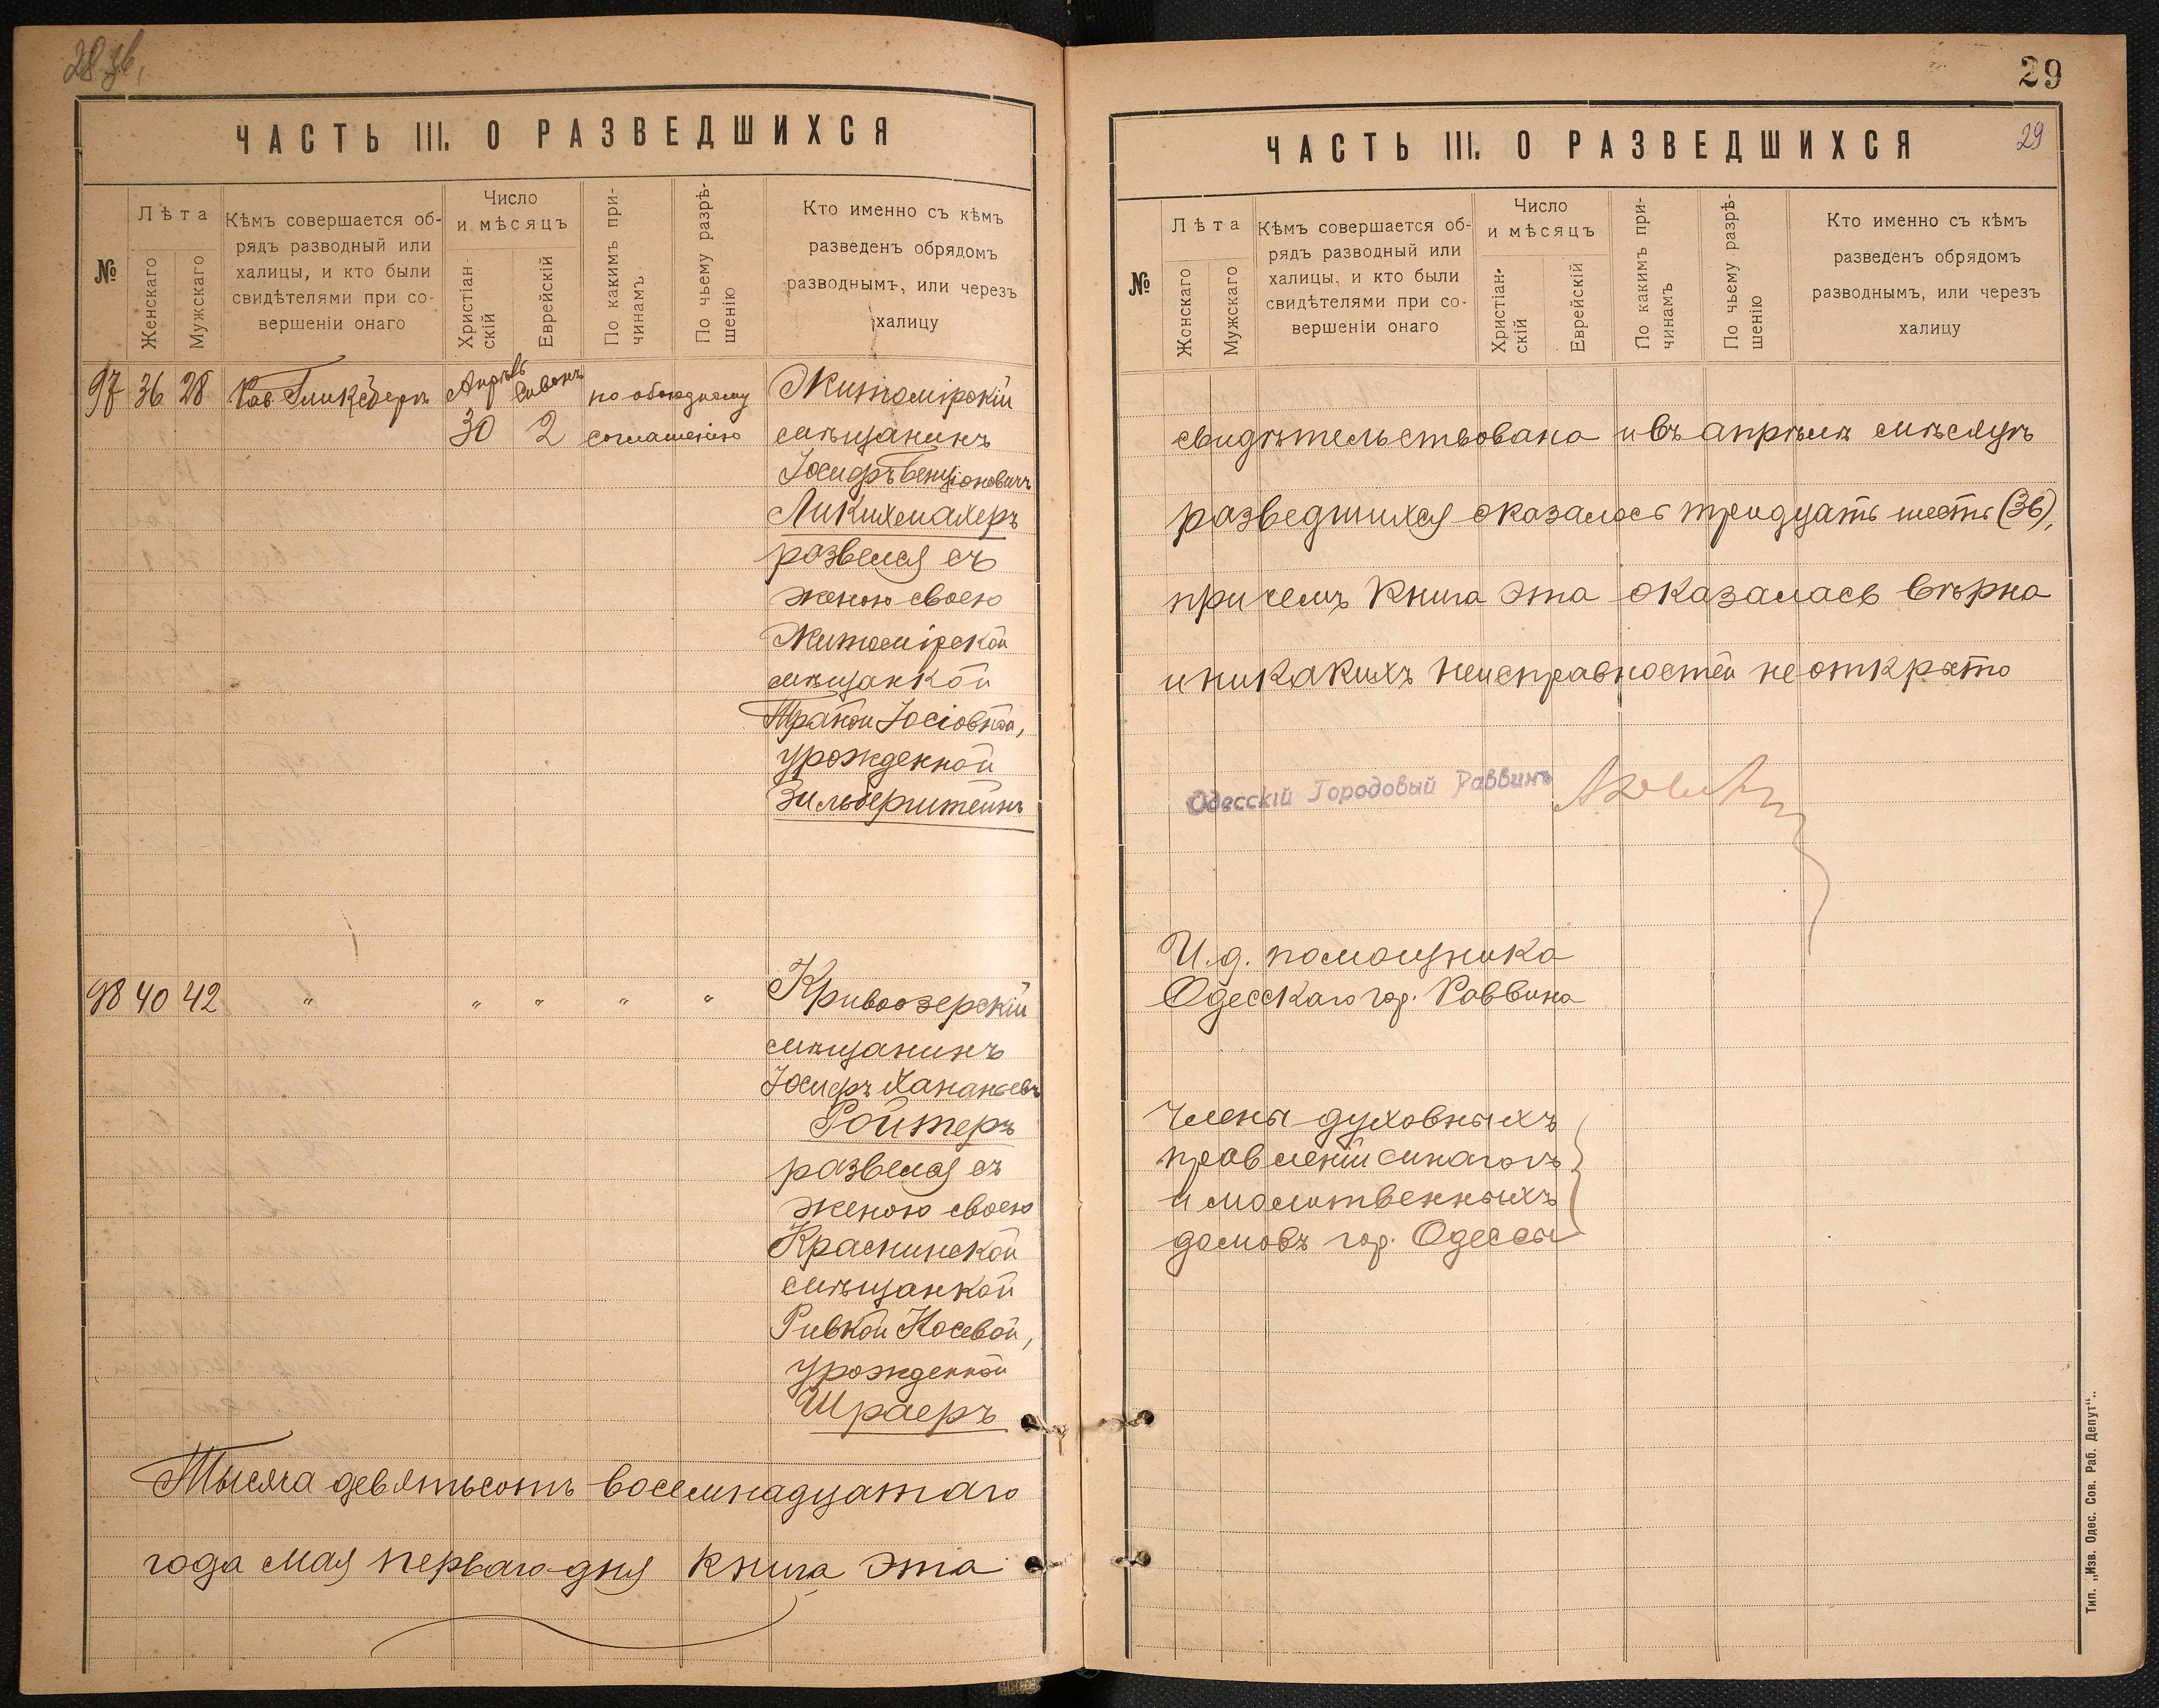 28 зв.
ЧАСТЬ III. О РАЗВЕДШИХСЯ
№
Лѣта
Женскаго
Мужскаго
Кѣмъ совершается об-
рядъ разводный или
халицы, и кто были
свидѣтелями при со-
вершеніи онаго
Число
и мѣсяцъ
Христіан-
скій
Еврейскій
По какимъ при-
чинамъ
По чьему разрѣ-
шенію
Кто именно съ кѣмъ
разведенъ обрядомъ
разводнымъ, или черезъ
халицу
97 36 28 Рав Гликсберъ Апрѣль Сивонъ по обоюдному Житомірскій
30 2 соглашенію мѣщанинъ
Іосифъ Бенціоновичъ
Ликихмахеръ
развелся съ
женою своею
Житомірской
мѣщанкой
Іосіовной,
урожденной
Зильберштейнъ
98 40 42 " " " " " Кривоозерскій
мѣщанинъ
Іосифъ Хананьевъ
Ройтеръ
развелся съ
женою своею
Краснинской
мѣщанкой
Ривкой Носевой,
урожденной
Шраеръ
Тысяча девятьсотъ восемнадцатаго
года мая перваго дня книга эта
29
ЧАСТЬ III. О РАЗВЕДШИХСЯ
29
№
Лѣта
Женскаго
Мужскаго
Кѣмъ совершается об-
рядъ разводный или
халицы, и кто были
свидѣтелями при со-
вершеніи онаго
Число
и мѣсяцъ
Христіан-
скій
Еврейскій
По какимъ при-
чинамъ
По чьему разрѣ-
шенію
Кто именно съ кѣмъ
разведенъ обрядомъ
разводнымъ, или черезъ
халицу
свидѣтельствована и въ апрѣлѣ мѣсяцѣ
разведшихся оказалось тридцать шесть (36),
при чемъ книга эта оказалась вѣрна
и никакихъ неисправностей не открыто
Одесскій Городовый Раввинъ
И. д. помощника
Одесскаго гор. Раввина
Члены духовныхъ
правленій синагогъ
и молитвенныхъ
домовъ гор. Одессы
Тип. „Изв. Одес. Сов. Раб. Депут“.